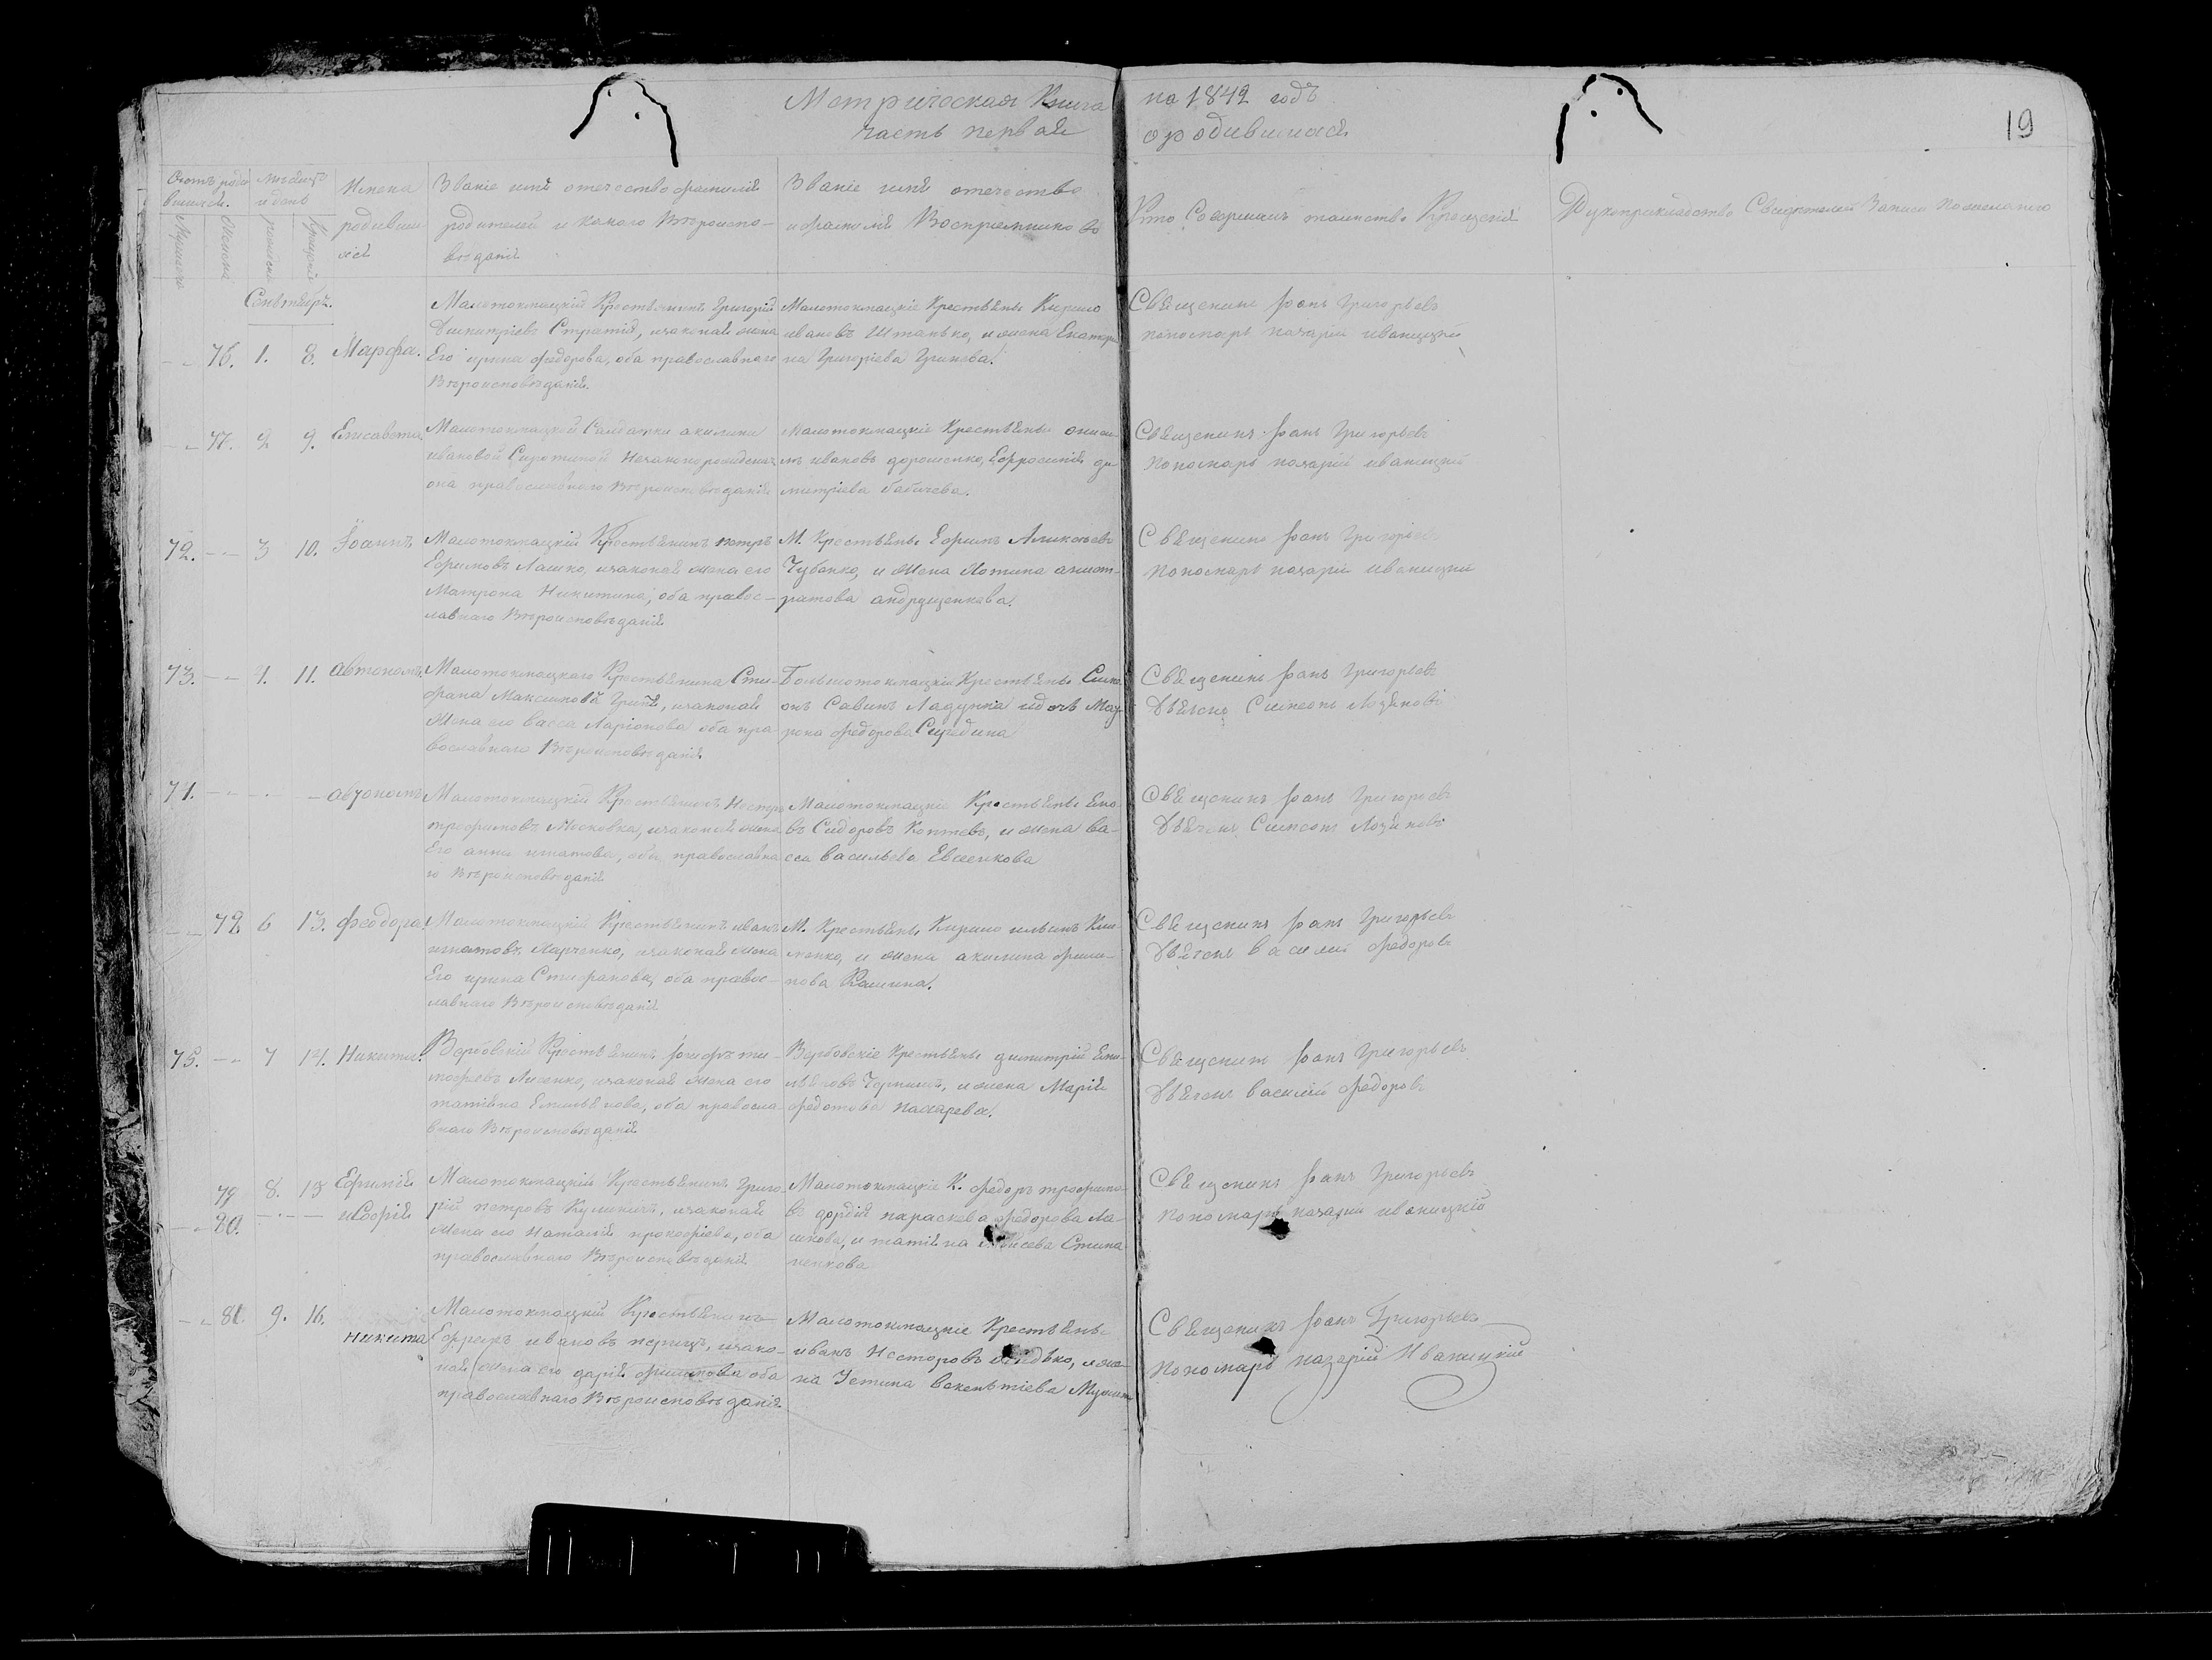 Метрическая Книга на 1842 годъ
часть первая о родившихся
19
Счотъ роди
вшихся.
Мѣсяцъ
и день
Имена
родивши
хся
Званіе имя отечество фамилія
родителей и какого Вѣроиспо-
вѣданія
Званіе имя отечество
и фамилія Воспріемниковъ
Кто Совершилъ таинство Крещенія
Рукоприкладство Свидѣтелей Записи по желанію
Сентябрь.
76. 1. 8. Марфа.
Малотокмацкій Крестьянинъ Григорій
Димитріевъ, изаконая жена
Его ирина федорова, оба православнаго
Вѣроисповѣданія.
Малотокмацкіе Крестьяне Кирило
ивановъ Штанько, и жена Екатери
на Григоріева Гринева.
Священикъ Іоанъ Григорьевъ
пономарь назарій иваницкій
77. 2 9. Елисавета
Малотокмацкой Салдатки акилины
ивановой Сиротиной Незаконорожденная
она православнаго Вѣроисповѣданія
Малотокмацкіе Крестьяне
ивановъ дорошенко, Ефросинія ди-
митріева бабичева.
Священикъ Іоанъ Григорьевъ
Пономарь назарій иваницкій
72. 3 10. Іоаннъ
Малотокмацкій Крестьянинъ петръ
Ефимовъ Лашко, изаконая жена его
Матрона Никитина, оба правос-
лавнаго Вѣроисповѣданія
М. Крестьяне Ефимъ Аликсѣевъ
Чубенко, и жена Хотина
андрущенкова.
Священикъ Іоанъ Григорьевъ
Пономарь назарій иваницкій
73. 4. 11. автономъ
Малотокмацкаго Крестьянина Сти-
фана Максимова, изаконая
Жена его васса Ларіонова оба пра-
вославнаго Вѣроисповѣданія
Большотокмацкіе Крестьяне Симе
онъ Савинъ Ладунка идочъ
федорова Середина
Священикъ Іоанъ Григорьевъ
Дьячокъ Симеонъ Лозяновъ
74. автономъ
Малотокмацкій Крестьянинъ Несторъ
трофимовъ Московка, изаконая жена
Его анна игнатова, оба православна
го Вѣроисповѣданія
Малотокмацкіе Крестьяне
Сидоровъ Коптевъ, и жена ва-
сса васильева Евсенкова
Священикъ Іоанъ Григорьевъ
Дьячокъ Симеонъ Лозяновъ
78 6 13. феодора
Малотокмацкій Крестьянинъ иванъ
игнатовъ Марченко, изаконая жена
Его ирина Стифанова, оба правос-
лавнаго Вѣроисповѣданія
М. Крестьяне Кирило ильинъ Кли-
менко, и жена акилина фили-
пова Кашина.
Священикъ Іоанъ Григорьевъ
Дьячокъ василій федоровъ
75. 7 14. Никита.
Вербовскій Крестьянинъ Іосифъ ти-
мофѣевъ Лисенко, изаконая жена его
татіяна Емильянова, оба правосла-
внаго Вѣроисповѣданія
Вербовскіе Крестьяне димитрій Еми-
льяновъ, и жена Марія
федотова пахарева.
Священикъ Іоанъ Григорьевъ
Дьячокъ василій федоровъ
79 8. 15 Ефимія
80. и Софія
Малотокмацкій Крестьянинъ Григо-
рій петровъ Кулиничъ, изаконая
жена его Наталія прокофіева, оба
православнаго Вѣроисповѣданія
Малотокмацкіе К. федоръ трофимо-
въ параскева федорова Ла-
шкова, и татіяна Стипа
ненкова
Священикъ Іоанъ Григорьевъ
Пономарь назарій иваницкій
81. 9. 16. никита
Малотокмацкій Крестьянинъ
Ефремъ ивановъ, изако-
ная жена его дарія филипова оба
православнаго Вѣроисповѣданія
Малотокмацкіе Крестьяне
иванъ Несторовъ, и же-
на Устина викентіева
Священикъ Іоанъ Григорьевъ
Пономарь назарій Иваницкій